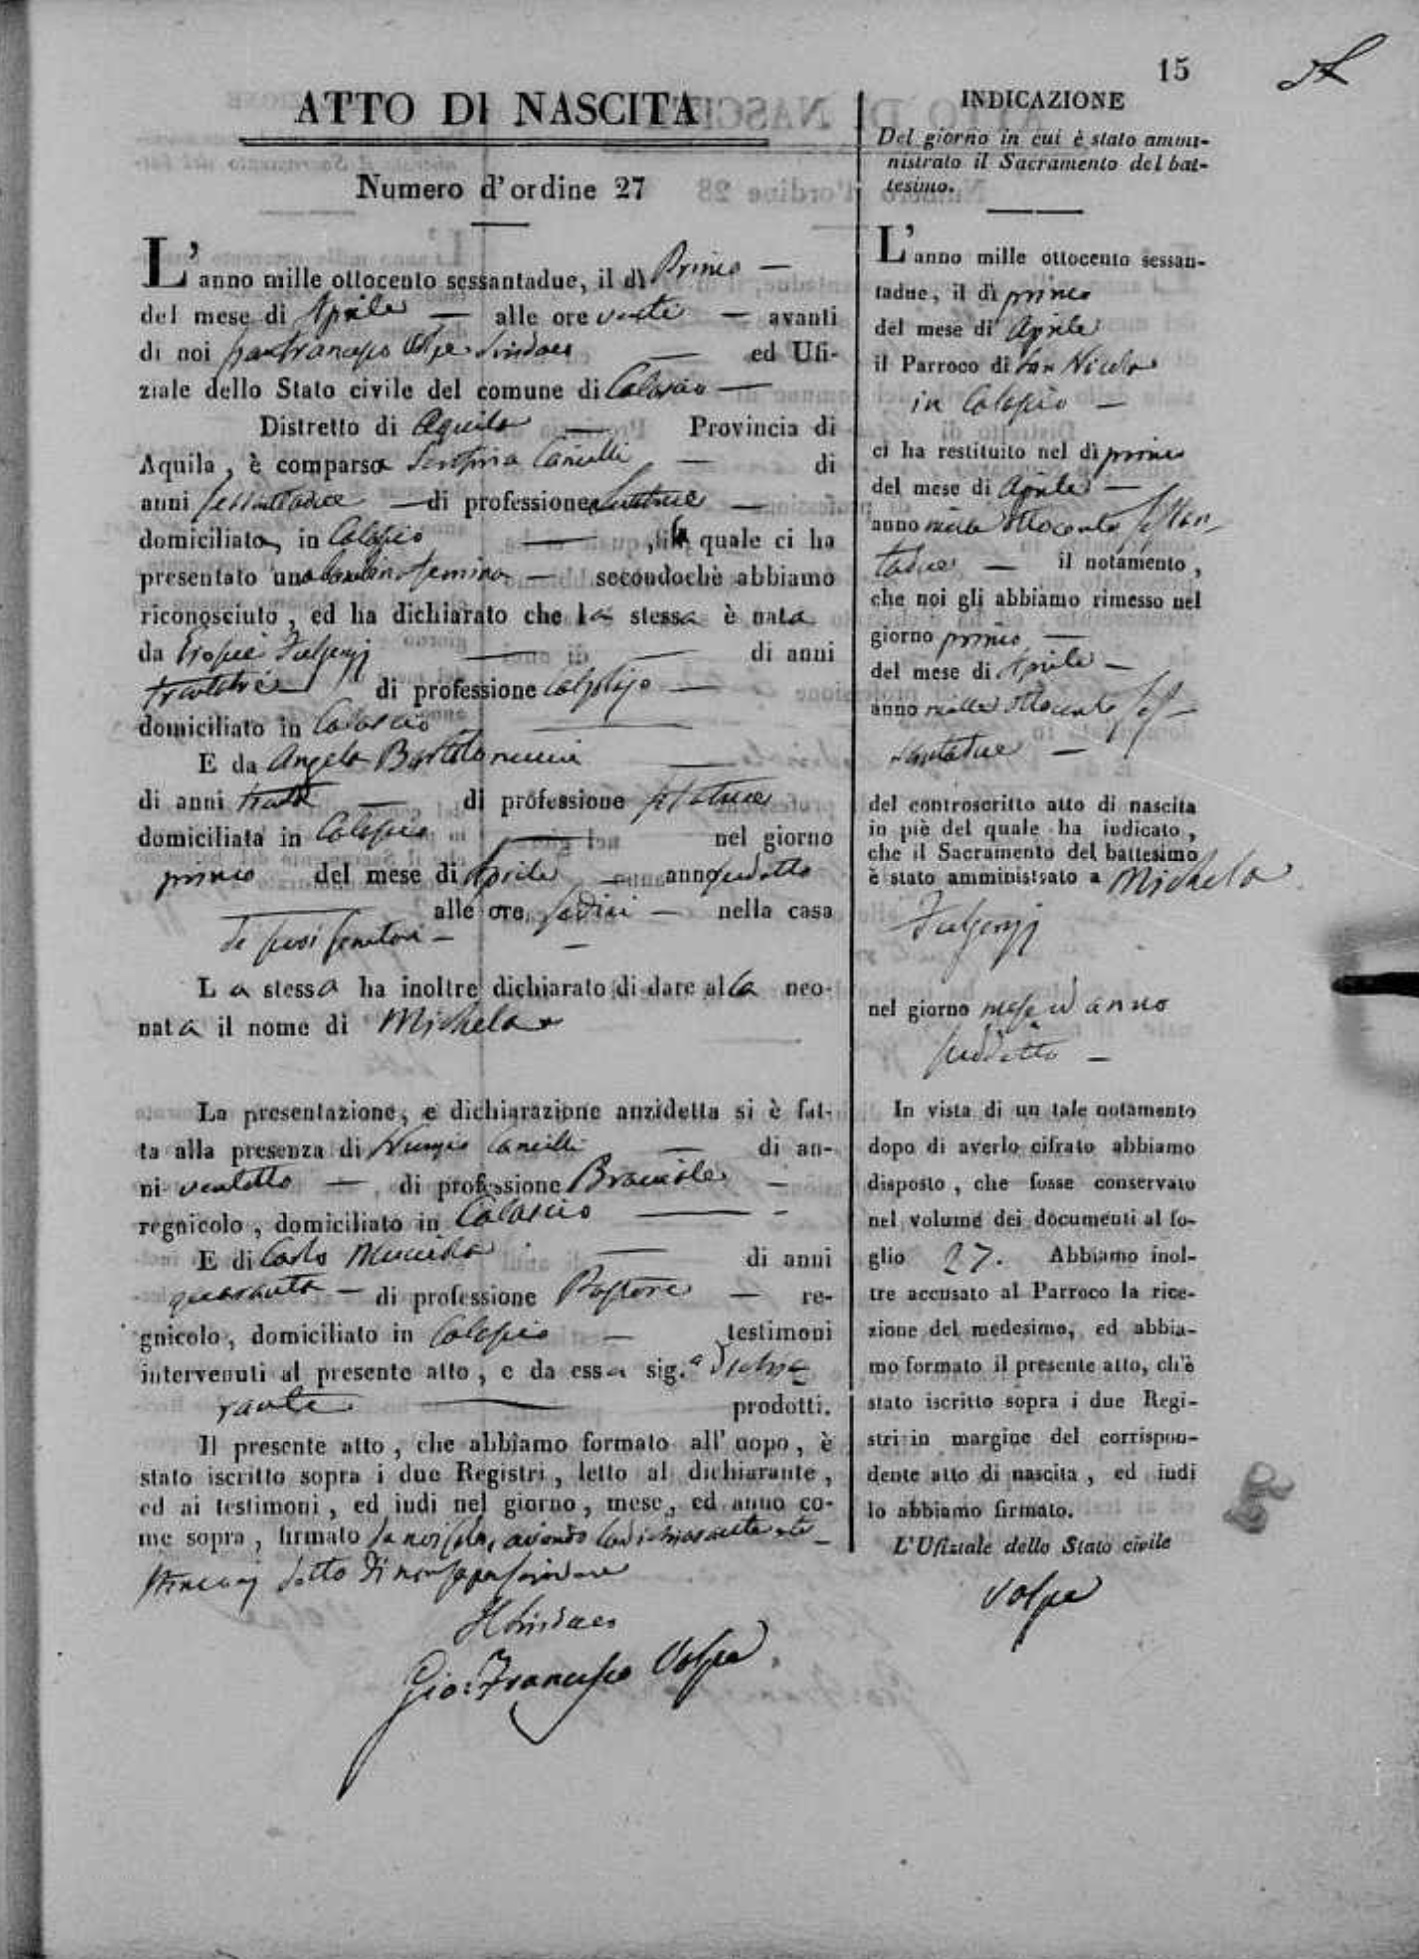 15
ATTO DI NASCITA
Numero d'ordine 27
L'anno mille ottocento sessantadue, il dì Primo —
del mese di Aprile — alle ore venti — avanti
di noi Gianfrancesco Volpe Sindaco — ed Ufi-
ziale dello Stato civile del comune di Calascio —
Distretto di Aquila — Provincia di
Aquila, è comparsa Serafina Cancelli — di
anni sessantadue — di professione Levatrice —
domiciliata, in Calascio — , la quale ci ha
presentato una bambina femina — secondochè abbiamo
riconosciuto, ed ha dichiarato che la stessa è nata
da Fulgenzj — di anni
trentatrè di professione —
domiciliato in Calascio —
E da Angela Bartolomucci —
di anni — di professione filatrice
domiciliata in Calascio — nel giorno
primo del mese di Aprile — anno suddetto
alle ore sedici — nella casa
de suoi genitori —
La stessa ha inoltre dichiarato di dare alla neo-
nata il nome di Michela
La presentazione, e dichiarazione anzidetta si è fat-
ta alla presenza di Nunzio Cancelli — di an-
ni ventotto — di professione Bracciale —
regnicolo, domiciliato in Calascio —
E di Carlo — di anni
quaranta — di professione Pastore — re-
gnicolo, domiciliato in Calascio — testimoni
intervenuti al presente atto, e da essa sig.a dichia-
rante — prodotti.
Il presente atto, che abbiamo formato all'uopo, è
stato iscritto sopra i due Registri, letto al dichiarante,
ed ai testimoni, ed indi nel giorno, mese, ed anno co-
me sopra, firmato da noi solo, avendo la dichiarante e te-
stimonj detto di non saper scrivere
Il Sindaco
Gio: Francesco Volpe
INDICAZIONE
Del giorno in cui è stato ammi-
nistrato il Sacramento del bat-
tesimo.
L'anno mille ottocento sessan-
tadue, il dì primo
del mese di Aprile
il Parroco di San Nicola
in Calascio —
ci ha restituito nel dì primo
del mese di Aprile —
anno mille ottocento sessan-
tadue — il notamento,
che noi gli abbiamo rimesso nel
giorno primo —
del mese di Aprile —
anno mille ottocento ses-
santadue —
del controscritto atto di nascita
in piè del quale ha indicato,
che il Sacramento del battesimo
è stato amministrato a Michela
Fulgenzj
nel giorno mese ed anno
suddetto —
In vista di un tale notamento
dopo di averlo cifrato abbiamo
disposto, che fosse conservato
nel volume dei documenti al fo-
glio 27. Abbiamo inol-
tre accusato al Parroco la rice-
zione del medesimo, ed abbia-
mo formato il presente atto, ch'è
stato iscritto sopra i due Regi-
stri in margine del corrispon-
dente atto di nascita, ed indi
lo abbiamo firmato.
L'Ufiziale dello Stato civile
Volpe